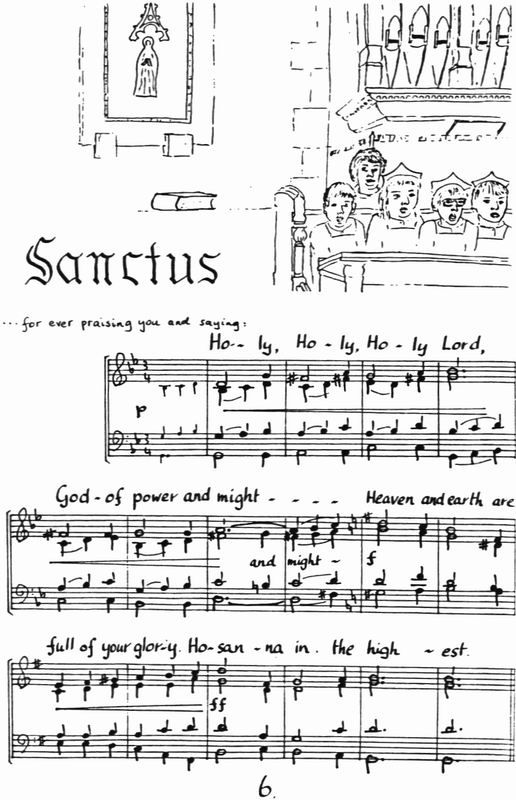 Sanctus
...for ever praising you and saying:
Ho-- ly, Ho - ly, Ho - ly Lord,
3
4
p
3
4
God - of power and might - - - - Heaven and earth are
and might ~ f
full of your glor-y. Ho-san - na in. the high ~ est.
ff
6.